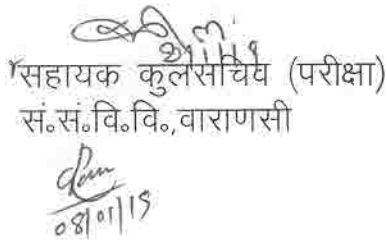 सहायक कुलसचिव (परीक्षा)
सं०सं०वि०वि०,वाराणसी
08/01/19